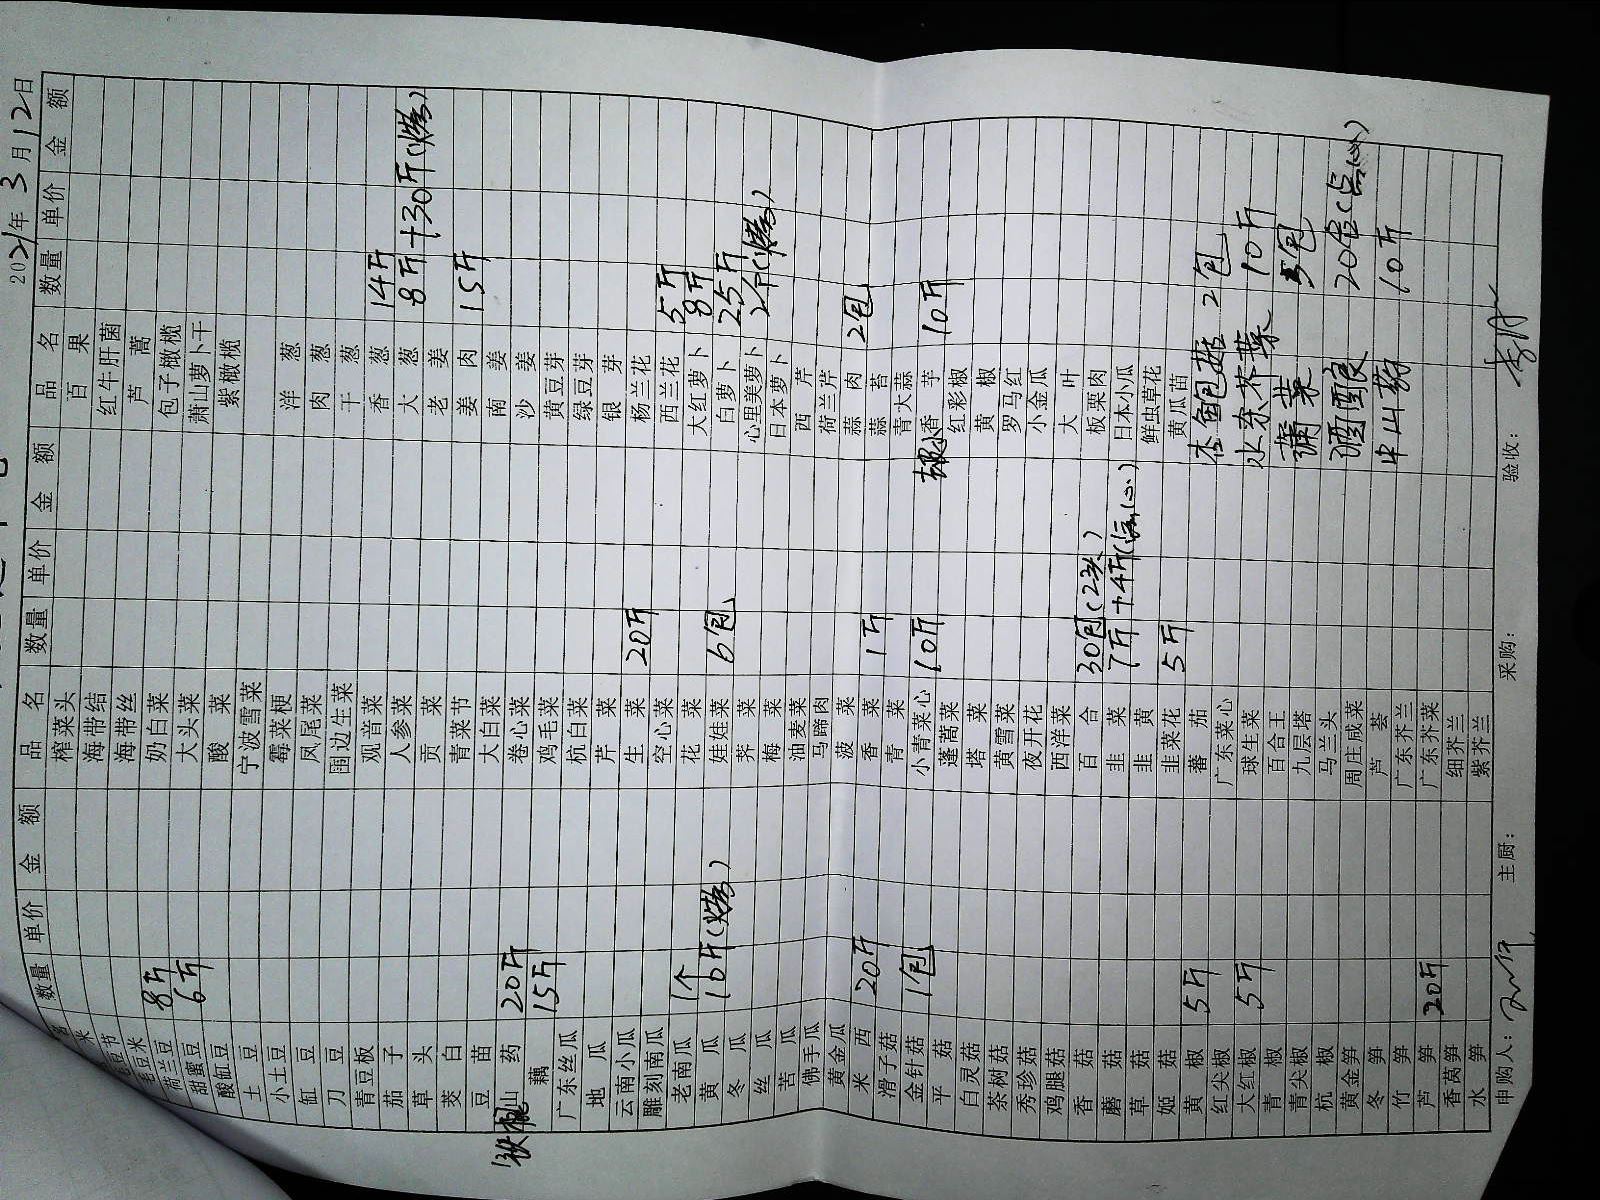 2021年 3月 12日
数量 单价 金额 品名 数量 单价 金额 品名 数量 单价 金额
榨菜头 百果
海带结 红牛肝菌
海带丝 芦蒿
荷兰豆 8斤 奶白菜 包子橄榄
甜蜜豆 6斤 大头菜 萧山萝卜干
酸缸豆 酸菜 紫橄榄
土豆 宁波雪菜
小土豆 霉菜梗 洋葱
缸豆 凤尾菜 肉葱
刀豆 围边生菜 干葱
青豆板 观音菜 香葱 14斤
茄子 人参菜 大葱 8斤+30斤(烧)
草头 贡菜 老姜
茭白 青菜节 姜肉 15斤
豆苗 大白菜 南姜
铁棍山药 20斤 卷心菜 沙姜
藕 15斤 鸡毛菜 黄豆芽
广东丝瓜 杭白菜 绿豆芽
地瓜 芹菜 银芽
云南小瓜 生菜 20斤 杨兰花
雕刻南瓜 空心菜 西兰花 5斤
老南瓜 1个 花菜 大红萝卜 8斤
黄瓜 10斤(烧) 娃娃菜 6包 白萝卜 25斤
冬瓜 荠菜 心里美萝卜 2个(烧)
丝瓜 梅菜 日本萝卜
苦瓜 油麦菜 西芹
佛手瓜 马蹄肉 荷兰芹
黄金瓜 菠菜 蒜肉 2包
米西 20斤 香菜 1斤 蒜苔
滑子菇 青菜 青大蒜
金针菇 1包 小青菜心 10斤 香芋 10斤
平菇 蓬蒿菜 红彩椒
白灵菇 塔菜 黄椒
茶树菇 黄雪菜 罗马红
秀珍菇 夜开花 小金瓜
鸡腿菇 西洋菜 大叶
香菇 百合 30包(2头) 板栗肉
蘑菇 韭菜 7斤+4斤(点心) 日本小瓜
草菇 韭黄 鲜虫草花
姬菇 韭菜花 5斤 黄瓜苗
黄椒 5斤 蕃茄 杏鲍菇 2包
红尖椒 广东菜心
大红椒 5斤 球生菜 水东芥菜 10斤
青椒 百合王 蒲菜 3包
青尖椒 九层塔
杭椒 马兰头 酒酿 20盒(点心)
黄金笋 周庄咸菜
冬笋 芦荟 牛山药 10斤
竹笋 广东芥兰
芦笋 20斤 广东芥菜
香莴笋 细芥兰
水笋 紫芥兰
申购人: 主厨: 采购: 验收: